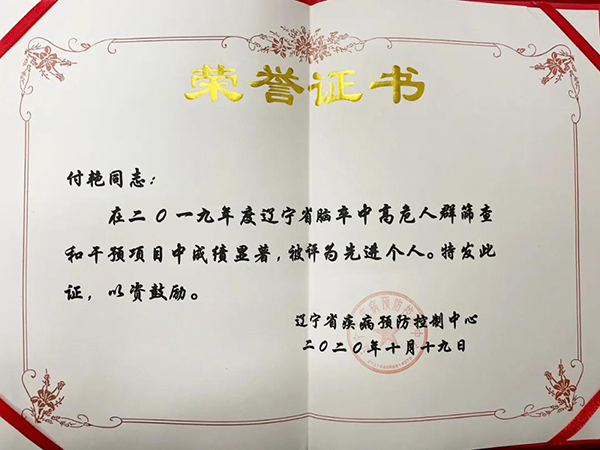 荣誉证书
付艳同志：
在二〇一九年度辽宁省脑卒中高危人群筛查
和干预项目中成绩显著，被评为先进个人。特发此
证，以资鼓励。
辽宁省疾病预防控制中心
二〇二〇年十月十九日